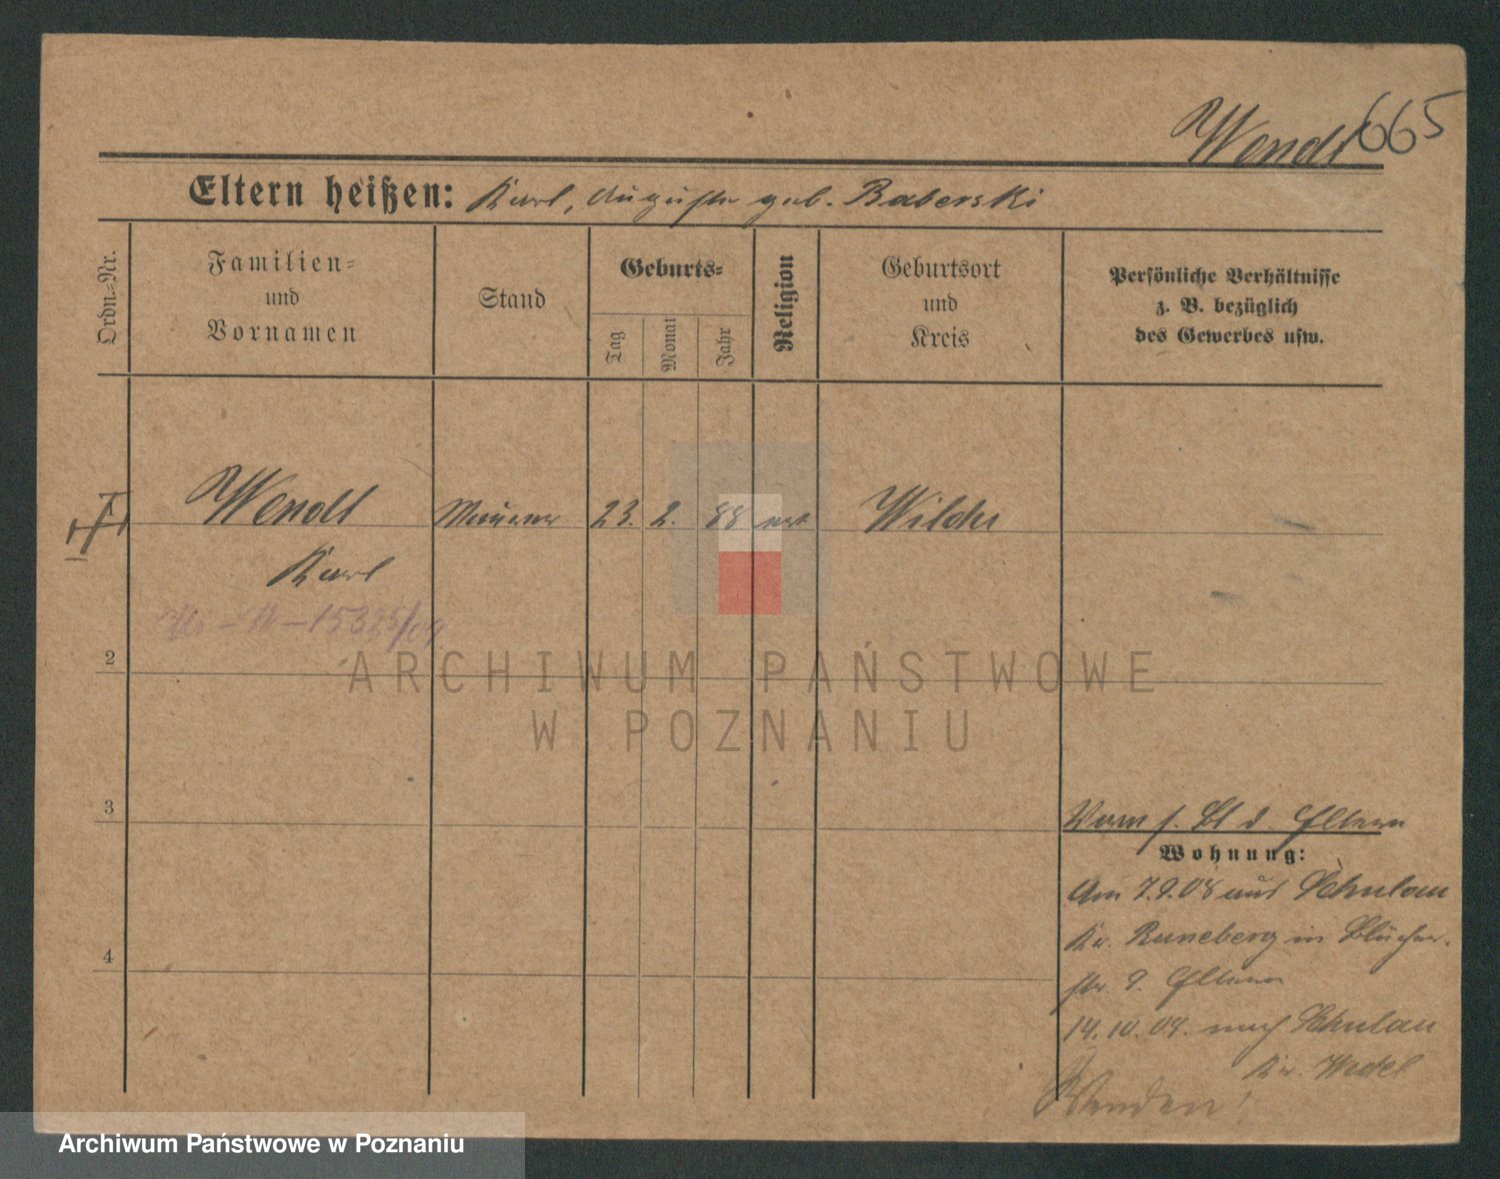 Wendt 665
Eltern heißen: Karl, Auguste geb. Baberski
Ordn.-Nr.
Familien-
und
Vornamen
Stand
Geburts-
Tag
Monat
Jahr
Religion
Geburtsort
und
Kreis
Persönliche Verhältnisse
z. B. bezüglich
des Gewerbes usw.
Wendt
Maurer
23. 2. 88
Wilda
Karl
15325/09
2
ARCHIWUM PAŃSTWOWE
W POZNANIU
3
Vorm s. Bl d. Eltern
Wohnung:
Am 7.9.08 aus Schulau
Kr. in Blücher-
str. 9. Eltern
4
14.10.08. nach Schulau
Kr. Wedel
Wenden!
Archiwum Państwowe w Poznaniu